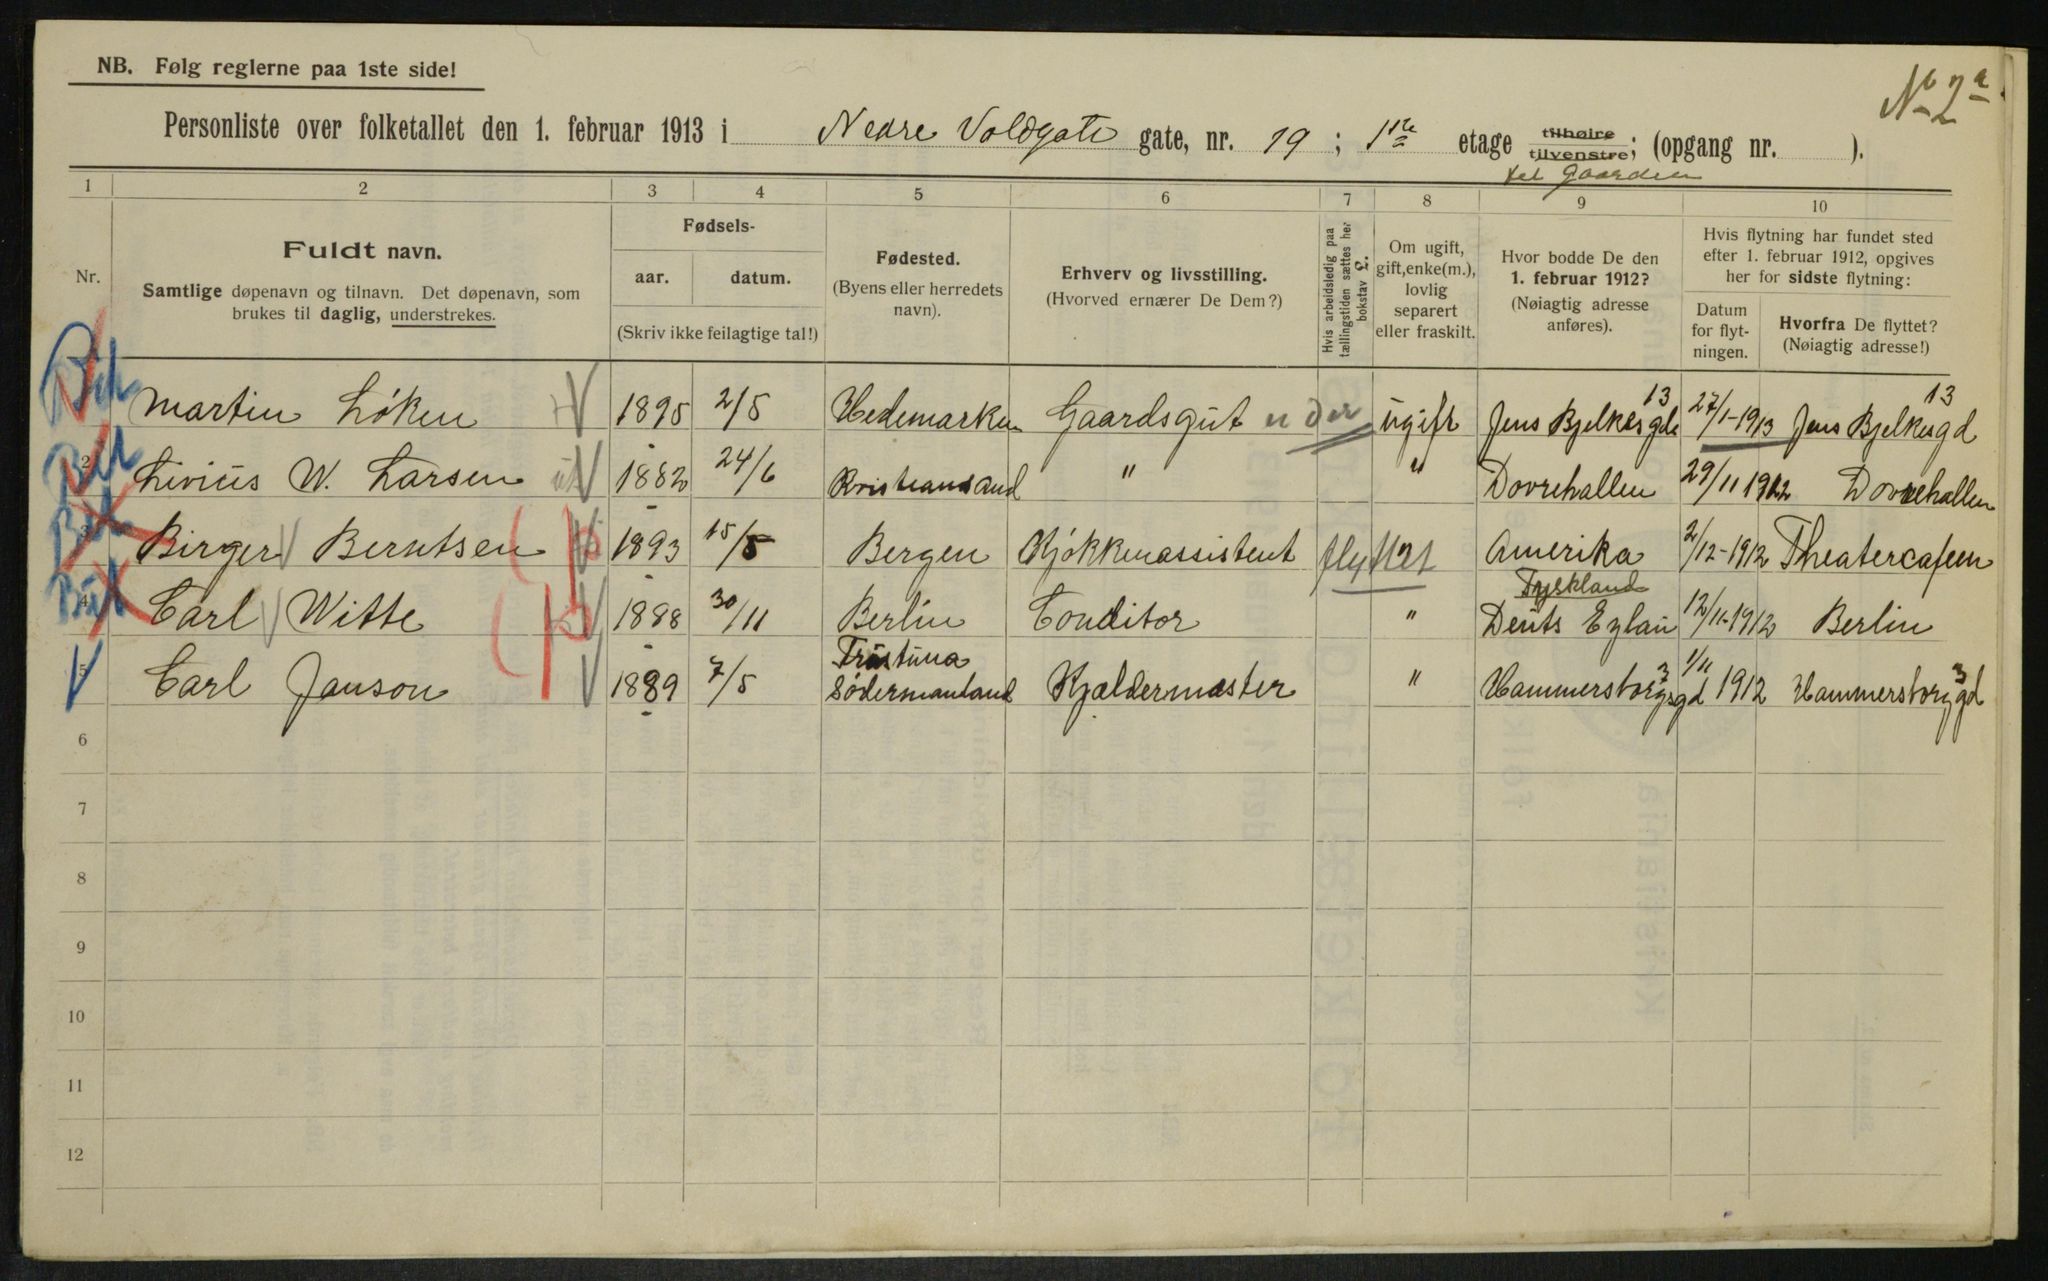 NB. Følg reglerne paa 1ste side!
No 2a
Personliste over folketallet den 1. februar 1913 i Nedre Voldgate gate, nr. 19; 1ste etage tilhøire tilvenstre; (opgang nr. ).
til Gaarden
1 2 3 4 5 6 7 8 9 10
Nr.
Fuldt navn.
Samtlige døpenavn og tilnavn. Det døpenavn, som
brukes til daglig, understrekes.
Fødsels-
aar. datum.
(Skriv ikke feilagtige tal!)
Fødested.
(Byens eller herredets
navn).
Erhverv og livsstilling.
(Hvorved ernærer De Dem?)
Hvis arbeidsledig paa
tællingstiden sættes her
bokstav L.
Om ugift,
gift, enke(m.),
lovlig
separert
eller fraskilt.
Hvor bodde De den
1. februar 1912?
(Nøiagtig adresse
anføres).
Hvis flytning har fundet sted
efter 1. februar 1912, opgives
her for sidste flytning:
Datum
for flyt-
ningen.
Hvorfra De flyttet?
(Nøiagtig adresse!)
Martin Løken 1895 2/5 Hedemarken Gaardsgut ugift Jens Bjelkesgde 13 27/1-1913 Jens Bjelkesgd 13
2 Livius W. Larsen 1882 24/6 Kristiansand " " Dovrehallen 29/11 1912 Dovrehallen
3 Birger Berntsen 1893 15/5 Bergen Kjøkkenassistent flyttet " Amerika 2/12-1912 Theatercafeen
4 Carl Witte 1888 30/11 Berlin Conditor " Tyskland
Deuts Eylau 12/11-1912 Berlin
5 Carl Janson 1889 7/5 Södermanland Kjældermester " Hammersborgsgd 3 1/11 1912 Hammersborggd 3
6
7
8
9
10
11
12